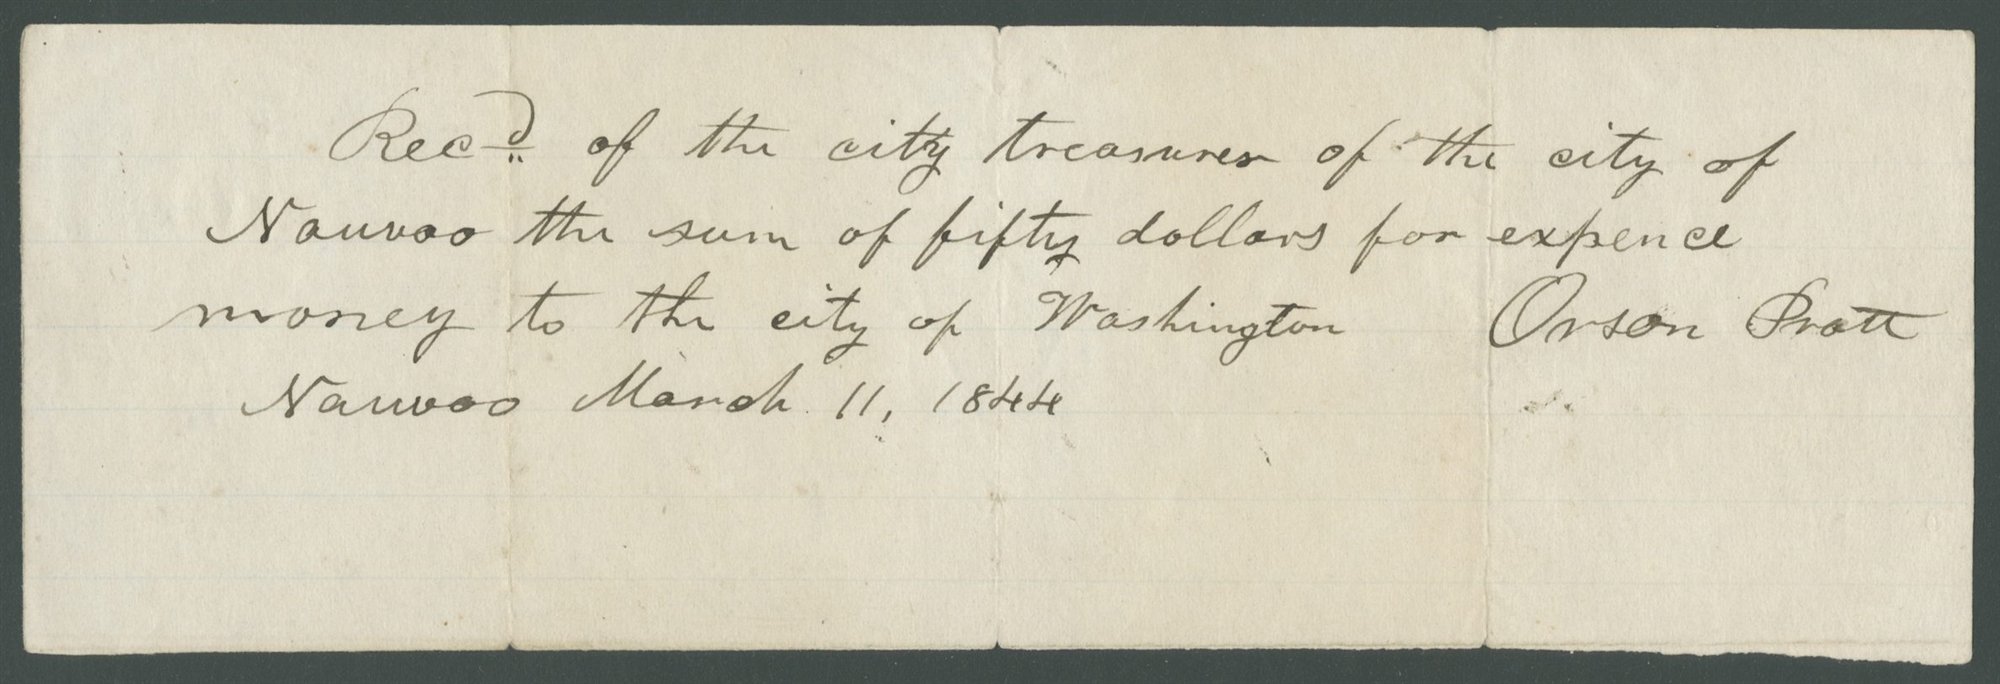 Recd of the city treasurer of the city of
Nauvoo the sum of fifty dollars for expence
money to the city of Washington Orson Pratt
Nauvoo March 11, 1844